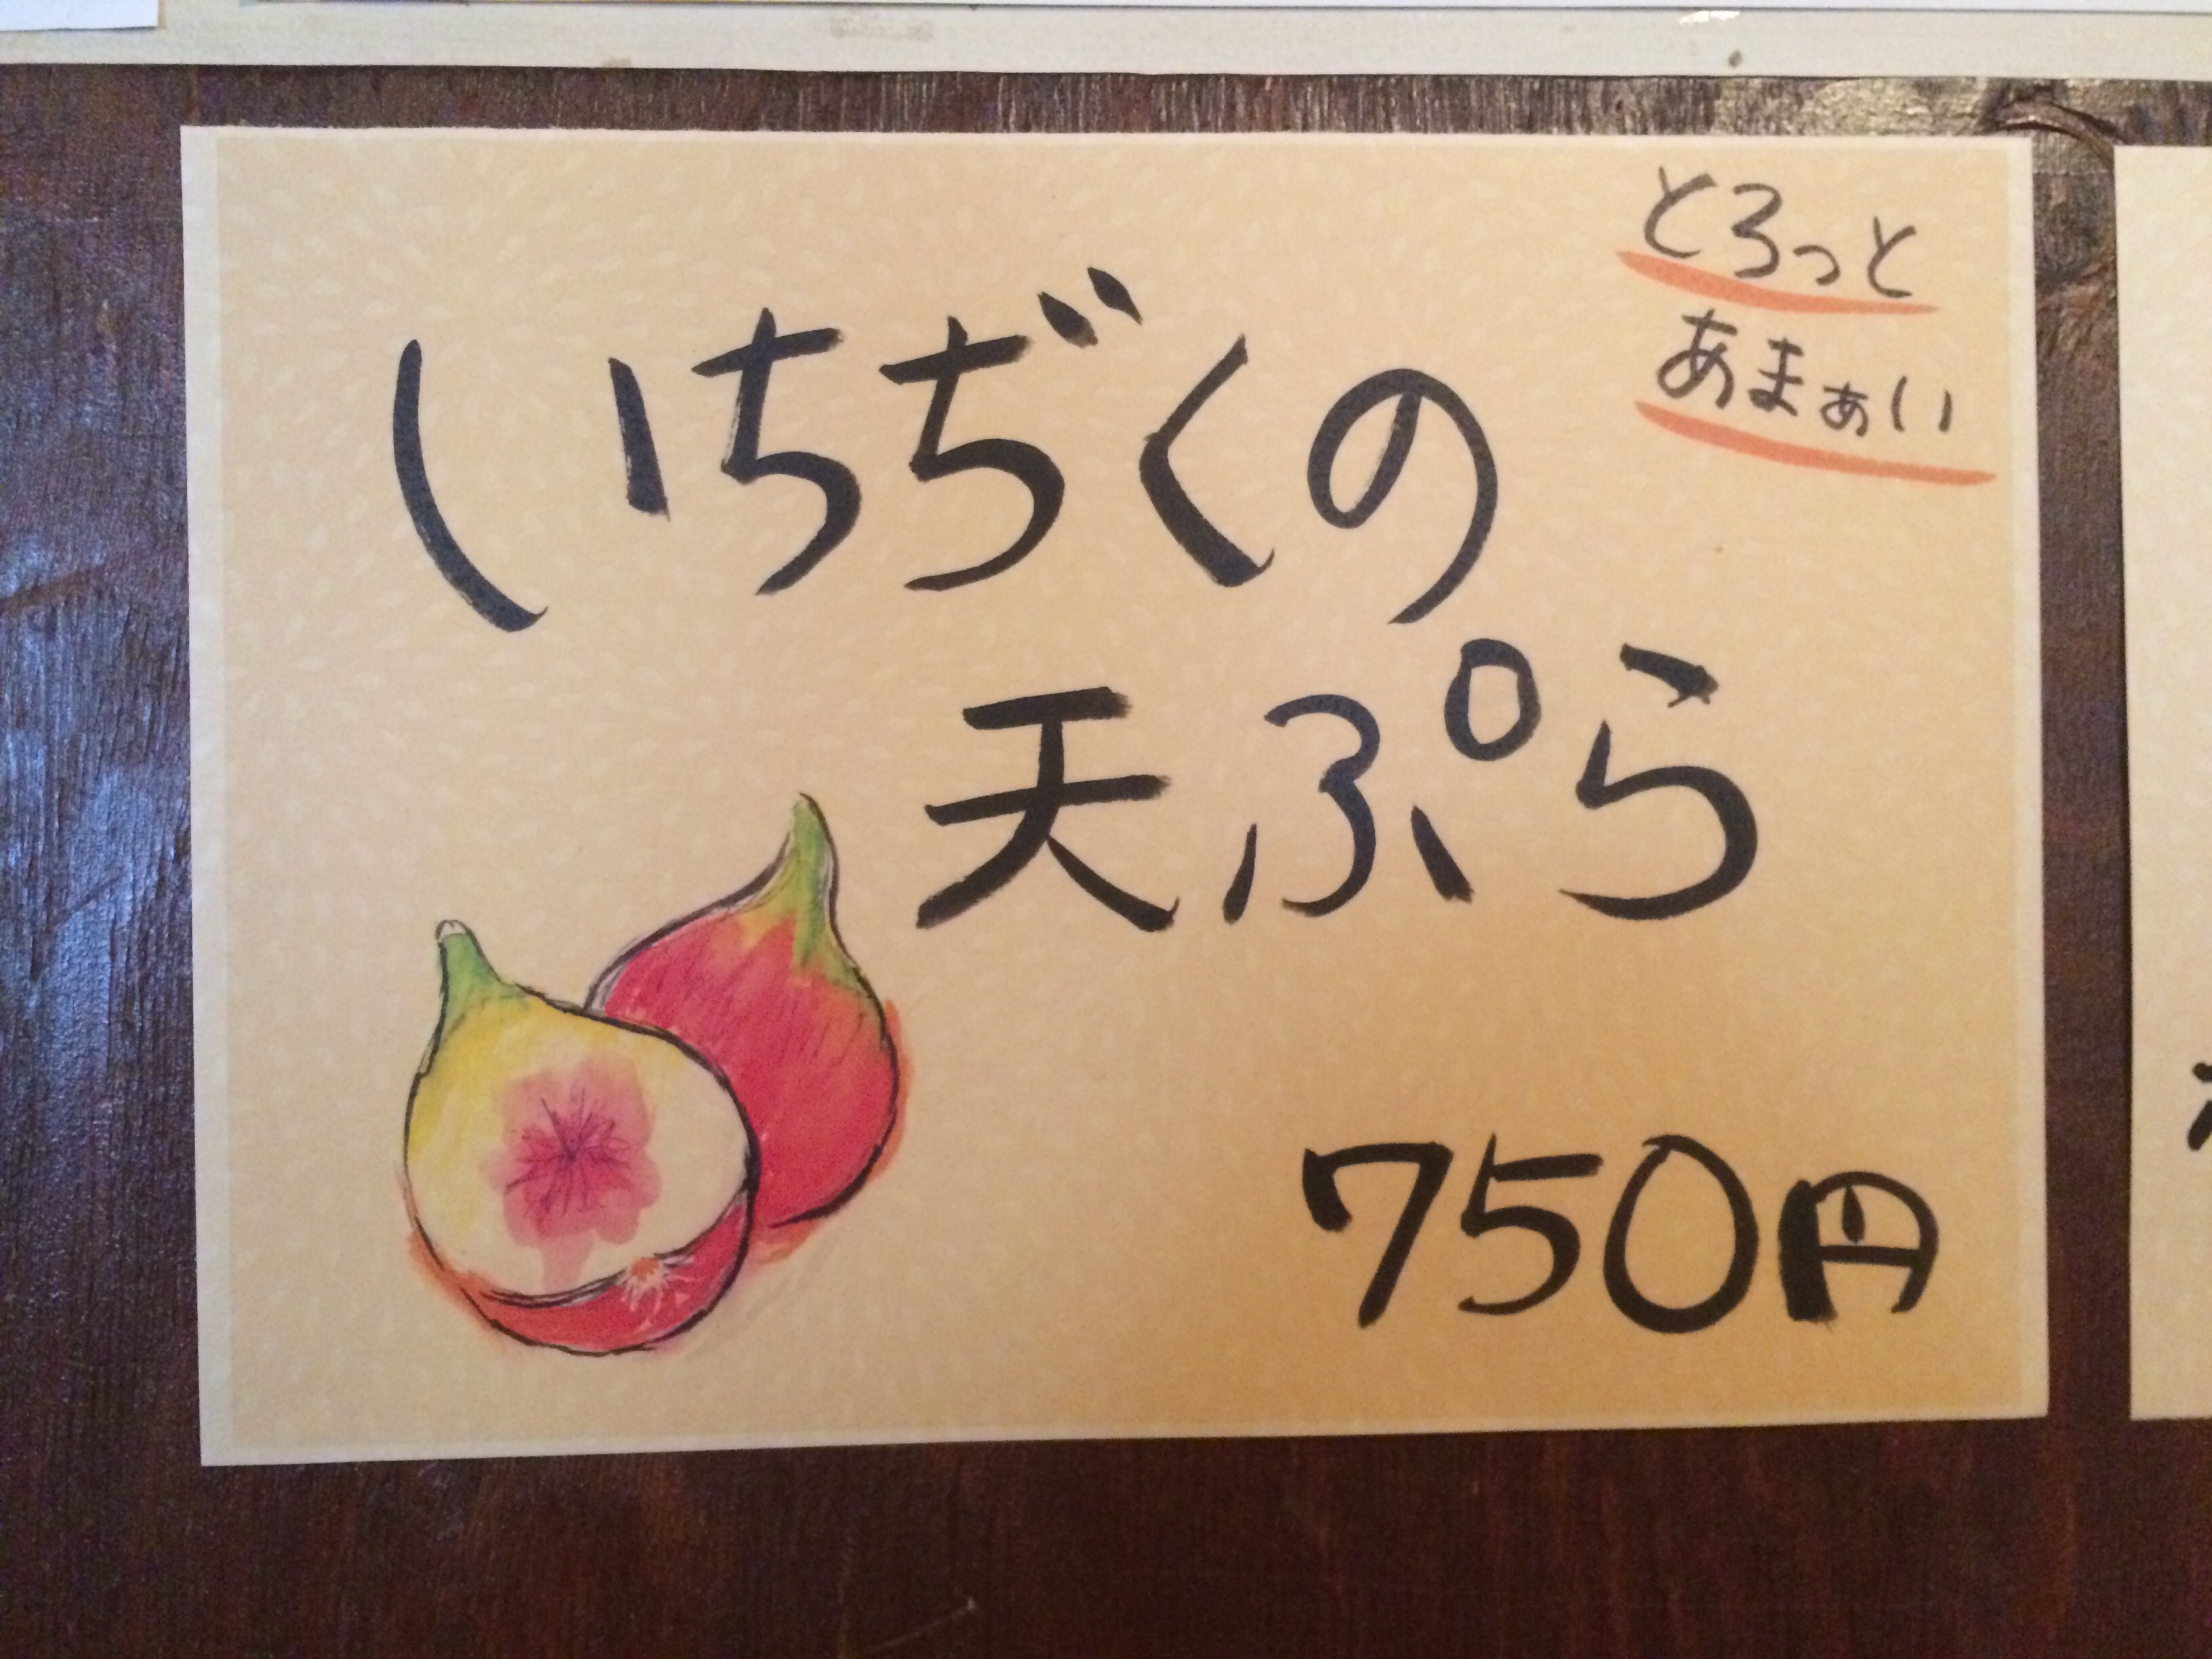 とろっと
あまぁい
いちぢくの
天ぷら
750円